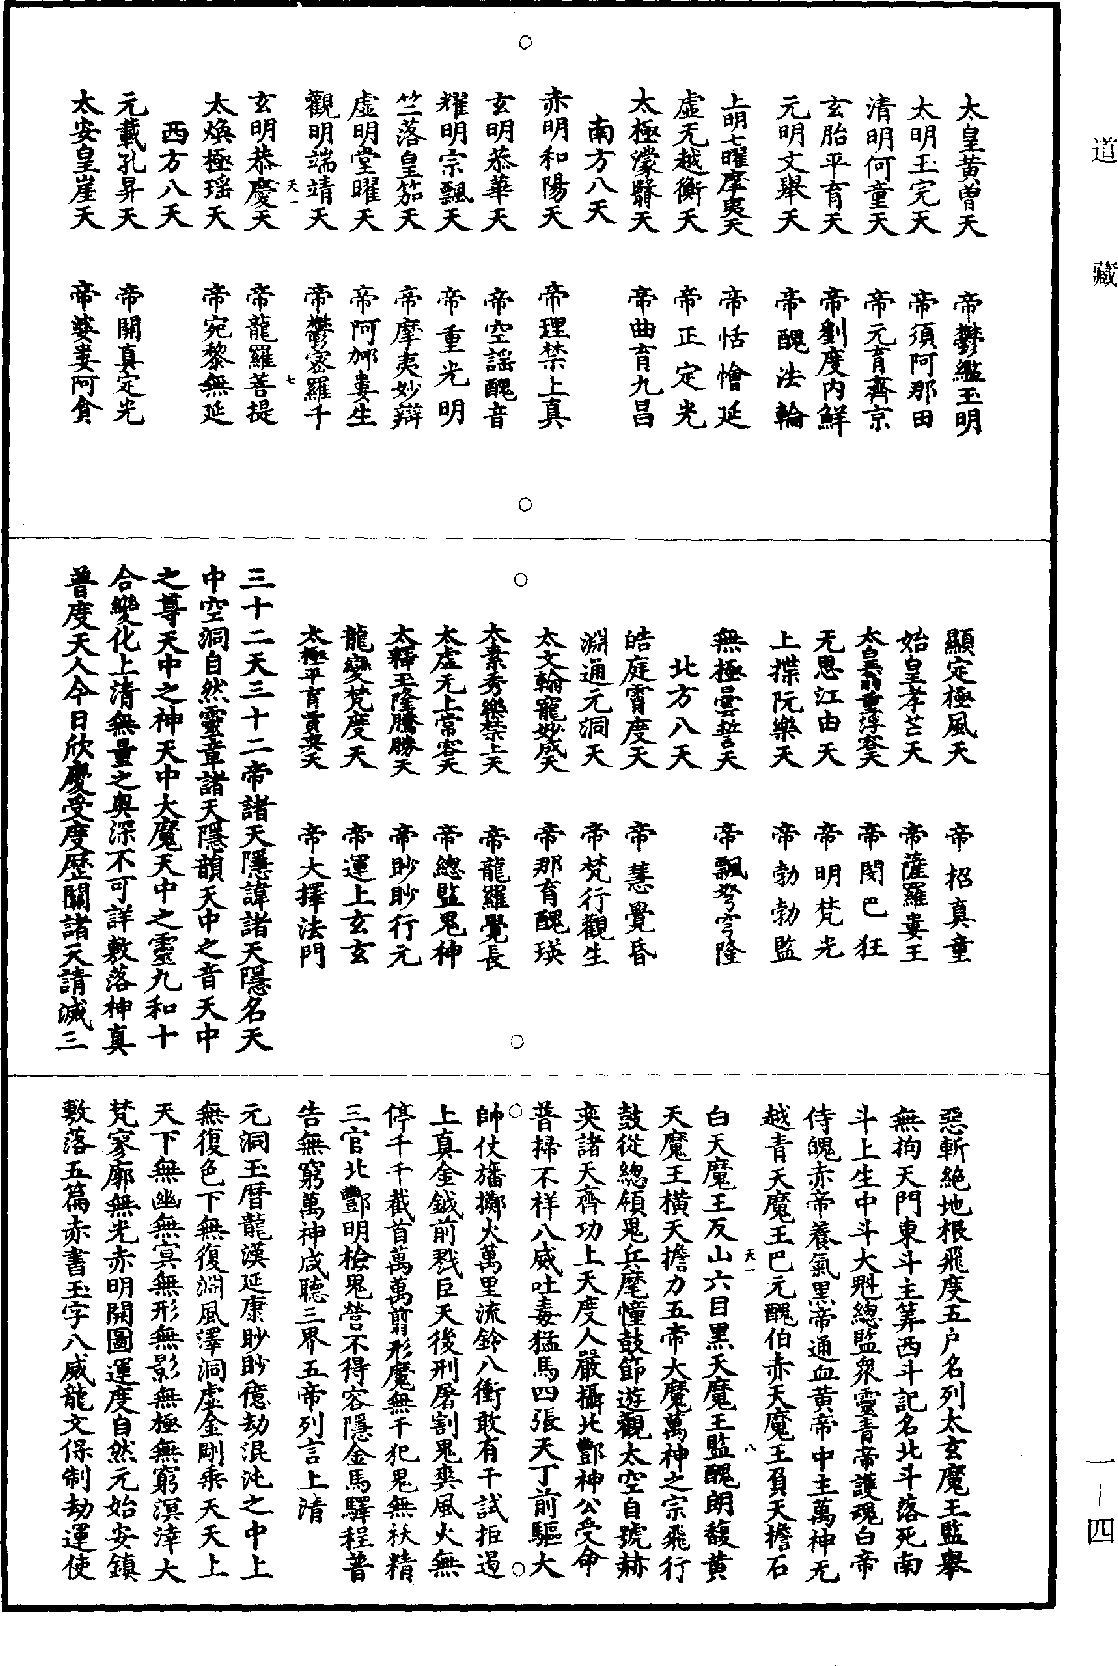 道藏
太皇黃曾天 帝鬱鑑玉明
太明玉完天 帝須阿那田
清明何童天 帝元育齊京
玄胎平育天 帝劉度內鮮
元明文舉天 帝醜法輪
上明七曜摩夷天 帝恬懀延
虛无越衡天 帝正定光
太極濛翳天 帝曲育九昌
南方八天
赤明和陽天 帝理禁上真
玄明恭華天 帝空謡醜音
耀明宗飄天 帝重光明
竺落皇笳天 帝摩夷妙辯
虛明堂曜天 帝阿䣕婁生
觀明端靖天 帝鬱密羅千
天一 七
玄明恭慶天 帝龍羅菩提
太煥極瑤天 帝宛黎無延
西方八天
元載孔昇天 帝開真定光
太安皇崖天 帝婆婁阿貪
顯定極風天 帝招真童
始皇孝芒天 帝薩羅婁王
太皇翁重浮容天 帝閔巴狂
无思江由天 帝明梵光
上揲阮樂天 帝勃勃監
無極曇誓天 帝飄弩穹隆
北方八天
皓庭霄度天 帝慧覺昏
淵通元洞天 帝梵行觀生
太文翰寵妙成天 帝那育醜瑛
太素秀樂禁上天 帝龍羅覺長
太虛无上常容天 帝總監鬼神
太釋玉隆騰勝天 帝眇眇行元
龍變梵度天 帝運上玄玄
太極平育賈奕天 帝大擇法門
三十二天三十二帝諸天隱諱諸天隱名天
中空洞自然靈章諸天隱韻天中之音天中
之尊天中之神天中大魔天中之靈九和十
合變化上清無量之奧深不可詳敷落神真
普度天人今日欣慶受度歷關諸天請滅三
惡斬絕地根飛度五户名列太玄魔王監舉
無拘天門東斗主筭西斗記名北斗落死南
斗上生中斗大魁總監衆靈青帝護魂白帝
侍魄赤帝養氣黑帝通血黃帝中主萬神无
越青天魔王巴元醜伯赤天魔王負天擔石
天一 八
白天魔王反山六目黑天魔王監醜朗馥黃
天魔王橫天擔力五帝大魔萬神之宗飛行
鼓從總領鬼兵麾幢鼓節遊觀太空自號赫
奕諸天齊功上天度人嚴攝北酆神公受命
普掃不祥八威吐毒猛馬四張天丁前驅大
帥仗旛擲火萬里流鈴八衝敢有干試拒遏
上真金鉞前戮巨天後刑屠割鬼爽風火無
停千千截首萬萬剪形魔無干犯鬼無袄精
三官北酆明檢鬼營不得容隱金馬驛程普
告無窮萬神咸聽三界五帝列言上清
元洞玉曆龍漢延康眇眇億劫混沌之中上
無復色下無復淵風澤洞虛金剛乘天天上
天下無幽無冥無形無影無極無窮溟涬大
梵寥廓無光赤明開圖運度自然元始安鎮
敷落五篇赤書玉字八威龍文保制劫運使
一-四